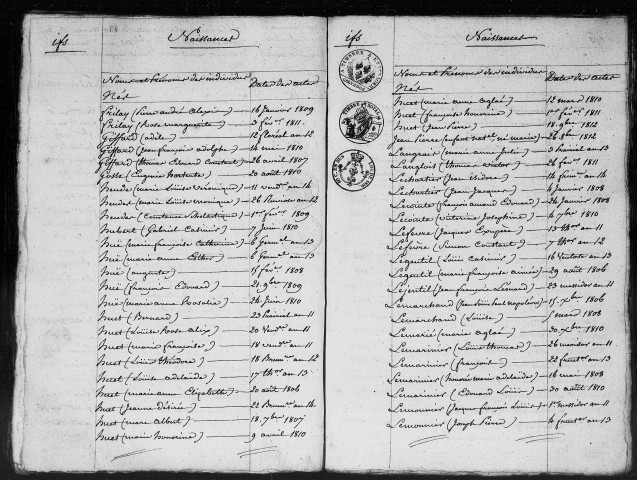 ifs
Naissances
Noms et Prénoms des individus
Nés
Dates des actes
(Pierre andré alexis) 16 Janvier 1809
(Rose marguerite) 3 fév.er 1811
Goffard (adèle) 12 floréal an 12
Goffard (jean françois adolphe) 14 mai 1810
Goffard (Edouard Constant) 26 avril 1807
Gosse (Eugénie hortense) 20 août 1810
(marie Louise Véronique) 11 vend.re an 14
(marie Louise monique) 26 Nivôse an 12
(Constance Scholastique) 1er fév.er 1809
hubert (Gabriel Casimir) 7 Juin 1810
hüe (marie françoise Catherine) 6 Germ.al an 13
hüe (marie anne Esther) 6 Germ.al an 13
hüe (auguste) 15 fév.er 1808
hüe (françois Edouard) 21 9bre 1809
hüe (marie anne Rosalie) 24 Juin 1810
huet (Bernard) 23 prairial an 11
huet (Louise Rose alix) 20 vend.re an 11
huet (marie françoise) 18 vend.re an 11
huet (Louis théodore) 18 Brum.re an 12
huet (Louise adelaïde) 17 th.or an 13
huet (marie anne Elizabeth) 20 août 1806
huet (Jeanne désirée) 22 Brum.re an 14
huet (marie albert) 18 7bre 1807
huet (marie honorine) 9 avril 1810
ifs
Naissances
Noms et Prénoms des individus
Nés
Dates des actes
huet (marie anne aglaé) 12 mars 1810
huet (françoise honorine) 1er fév.er 1811
huet (Jean Pierre) 18 9bre 1812
Jean Pierre (enfant nat.el né marie) 26 8bre 1812
Langrais (marie anne Julie) 3 prairial an 13
Langlois (thomas victor) 26 fév.er 1811
Lechartier (Jean isidore) 14 frim.re an 14
Lechartier (Jean Jacques) 4 Janvier 1808
Lecointe (françois amand Edouard) 24 Janvier 1808
Lecointe (victorine Josephine) 4 7bre 1810
Lefebvre (Jacques Exupère) 13 th.or an 11
Lefèvre (Simon Constant) 7 th.or an 12
Legentil (Louis Casimir) 16 Ventôse an 13
Legentil (marie françoise aimée) 29 août 1806
Legentil (Jean françois Léonard) 23 messidor an 11
Lemarchand (Jean Louis napoléon) 15 Xbre 1806
Lemarchand (Louise) 5 mars 1808
Lemarié (marie aglaé) 30 Xbre 1810
Lemarinier (Louis thomas) 26 messidor an 11
Lemarinier (françois) 22 fruct.or an 13
Lemarinier (honorine marie adelaïde) 16 mai 1808
Lemarinier (Edouard Louis) 30 août 1810
Lemonnier (Jacques françois Louis) 1er messidor an 11
Lemonnier (Joseph Pierre) 4 fruct.or an 13